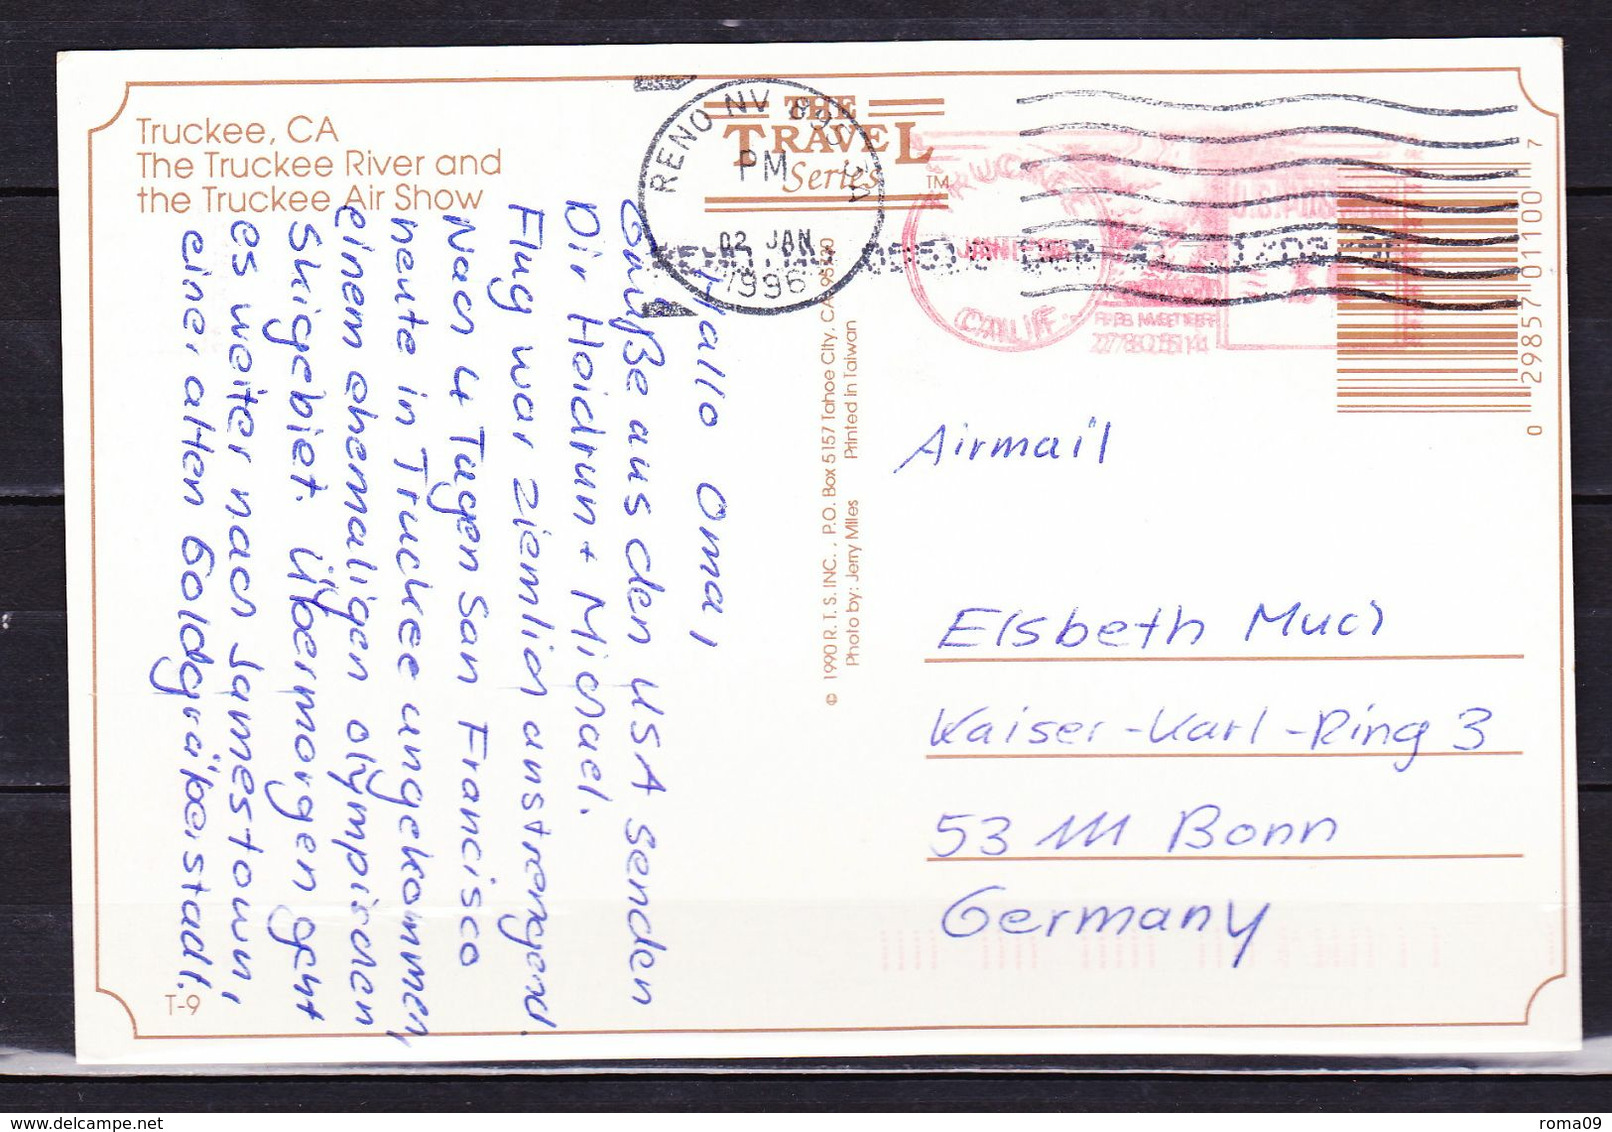 Truckee, CA
The Truckee River and
the Truckee Air Show
THE
TRAVEL
Series
TM
RENO NV
PM
02 JAN
1996
TRUCKEE
CALIF.
0 29857 01100 7
Hallo Oma,
Grüße aus den USA senden
Dir Heidrun + Michael.
Flug war ziemlich anstrengend.
Nach 4 Tagen San Francisco
heute in Truckee angekommen,
einem ehemaligen olympischen
Skigebiet. Übermorgen geht
es weiter nach Jamestown,
einer alten Goldgräberstadt.
T-9
© 1990 R. T. S. INC., P.O. Box 5157 Tahoe City, CA
Photo by: Jerry Miles Printed in Taiwan
Airmail
Elsbeth Much
Kaiser-Karl-Ring 3
53111 Bonn
Germany
roma09